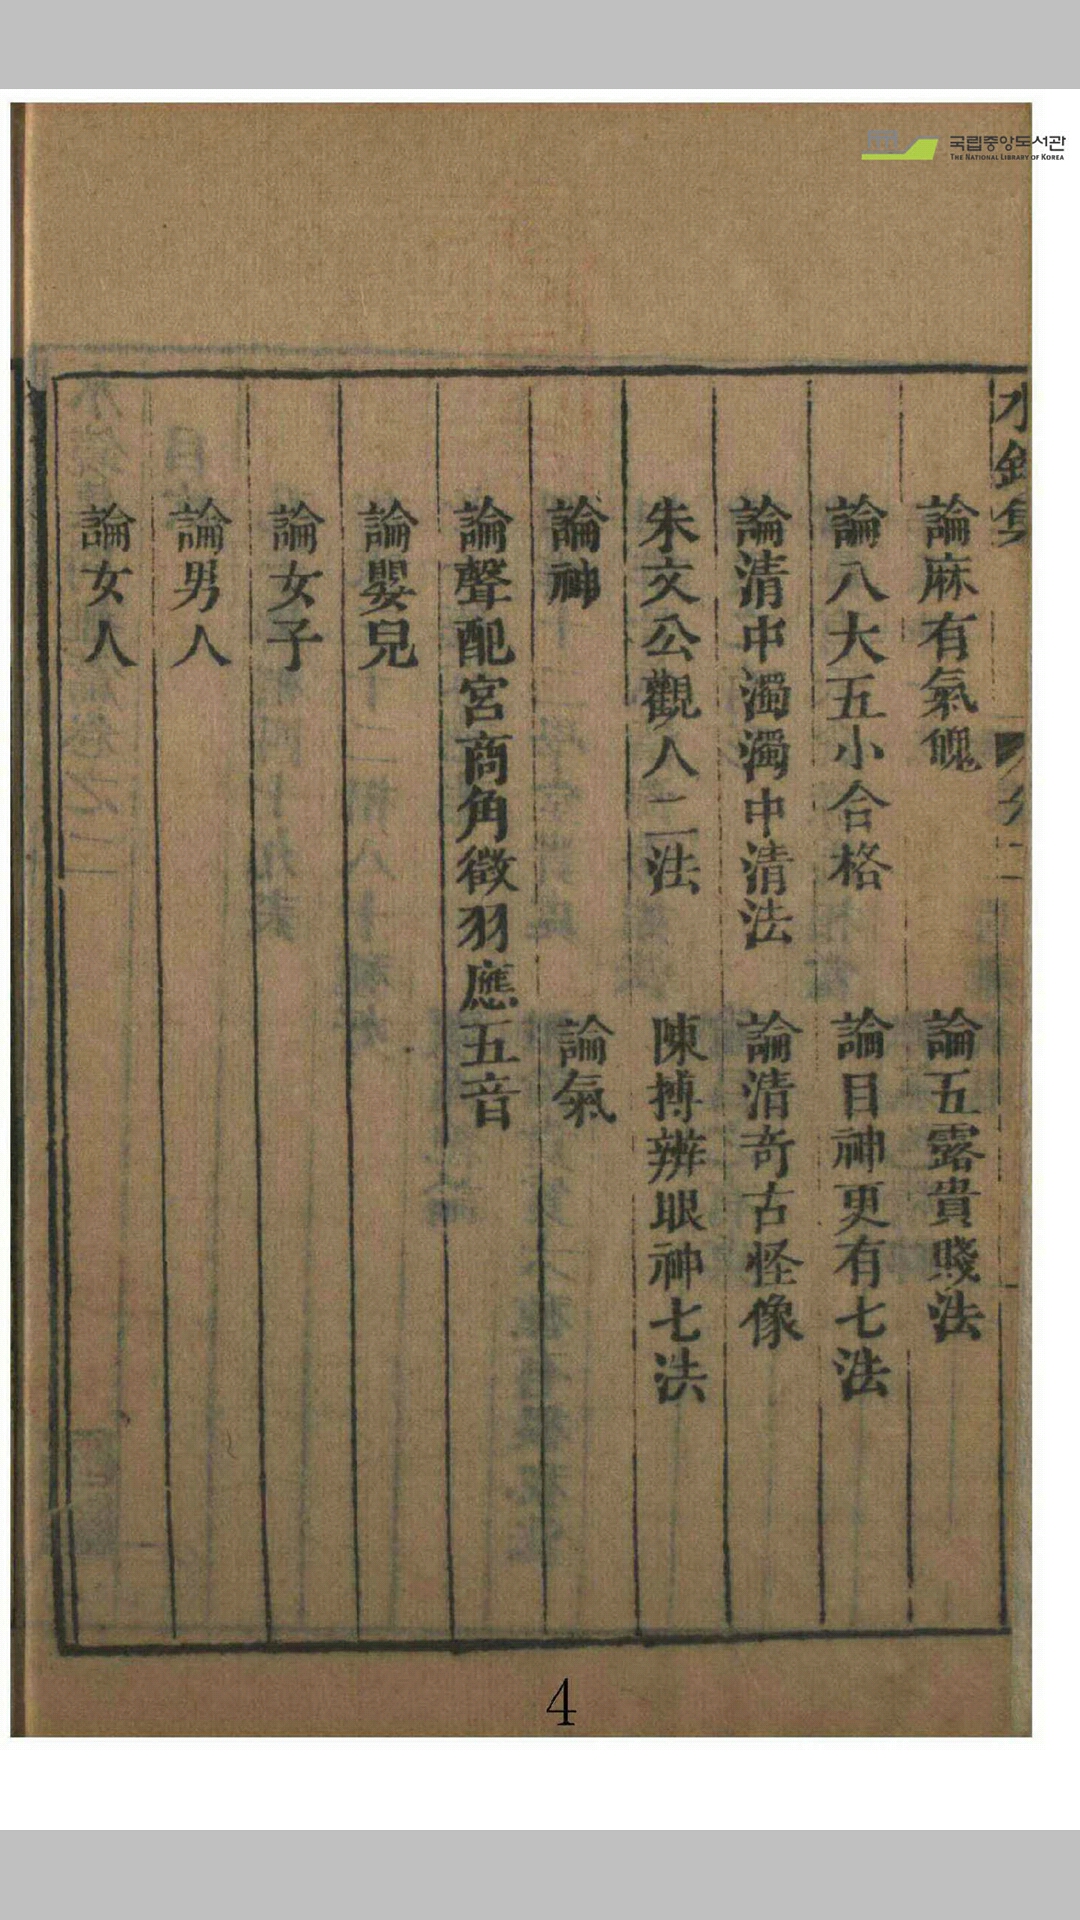 국립중앙도서관
THE NATIONAL LIBRARY OF KOREA
水鏡集
卷二
論麻有氣魄
論五露貴賤法
論八大五小合格
論目神更有七法
論清中濁濁中清法
論清奇古怪像
朱文公觀人二法
陳搏辨眼神七法
論神
論氣
論聲配宮商角徵羽應五音
論嬰兒
論女子
論男人
論女人
4